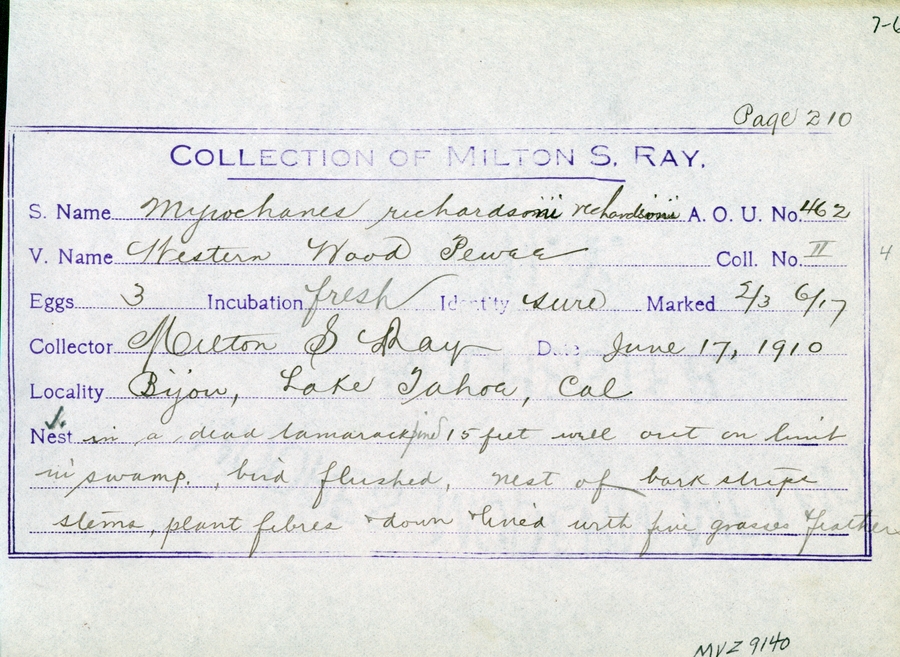 7-6
Page 210
COLLECTION OF MILTON S. RAY.
S. Name Myiochanes richardsonii richardsonii A. O. U. No. 462
V. Name Western Wood Pewee Coll. No. II 4
Eggs 3 Incubation fresh Identity sure Marked 2/3 6/17
Collector Milton S Ray Date June 17, 1910
Locality Bijou, Lake Tahoe, Cal
Nest in a dead tamarack pine 15 feet well out on limb
in swamp. bird flushed, nest of bark strips
stems, plant fibres & down & lined with fine grasses & feathers
MVZ 9140